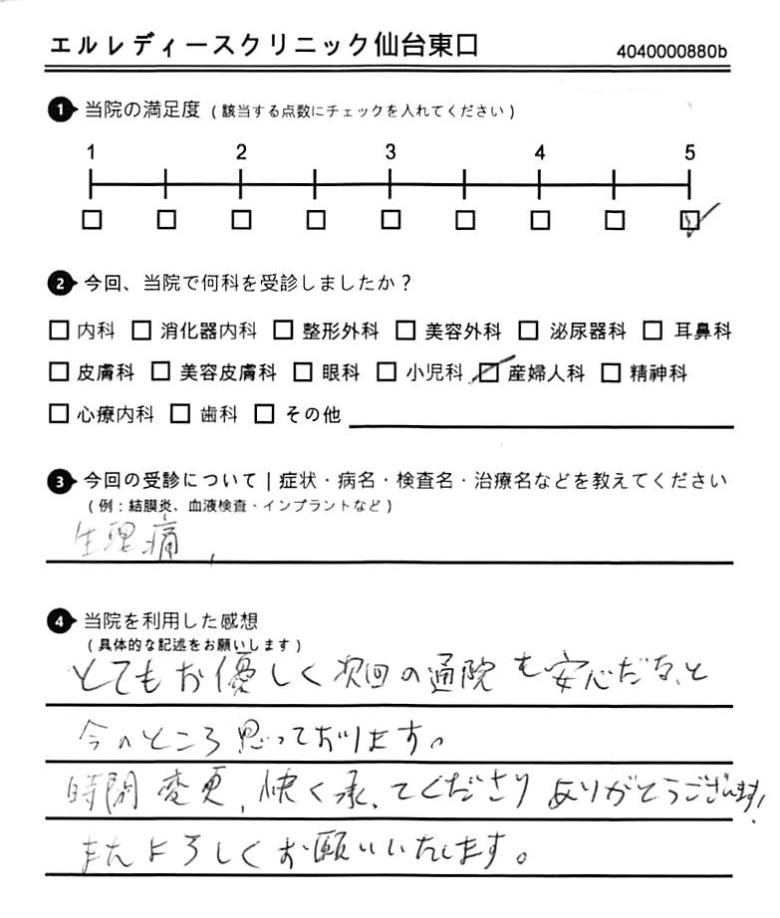 エルレディースクリニック仙台東口
4040000880b
1 当院の満足度 (該当する点数にチェックを入れてください)
1 2 3 4 5
□ □ □ □ □ □ □ □ ☑
2 今回、当院で何科を受診しましたか?
□ 内科 □ 消化器内科 □ 整形外科 □ 美容外科 □ 泌尿器科 □ 耳鼻科
□ 皮膚科 □ 美容皮膚科 □ 眼科 □ 小児科 ☑ 産婦人科 □ 精神科
□ 心療内科 □ 歯科 □ その他
3 今回の受診について | 症状・病名・検査名・治療名などを教えてください
(例:結膜炎、血液検査・インプラントなど)
生理痛、
4 当院を利用した感想
(具体的な記述をお願いします)
とてもお優しく次回の通院も安心だな、と
今のところ思っております。
時間変更、快く承ってくださりありがとうございます!
またよろしくお願いいたします。